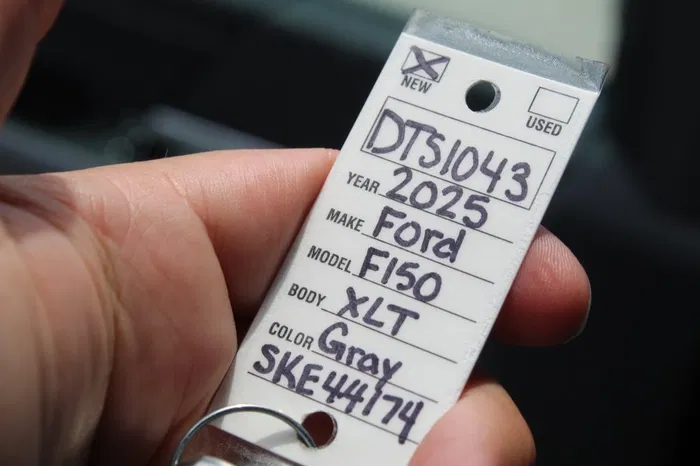 NEW
USED
DTS1043
YEAR 2025
MAKE Ford
MODEL F150
BODY XLT
COLOR Gray
SKE44174